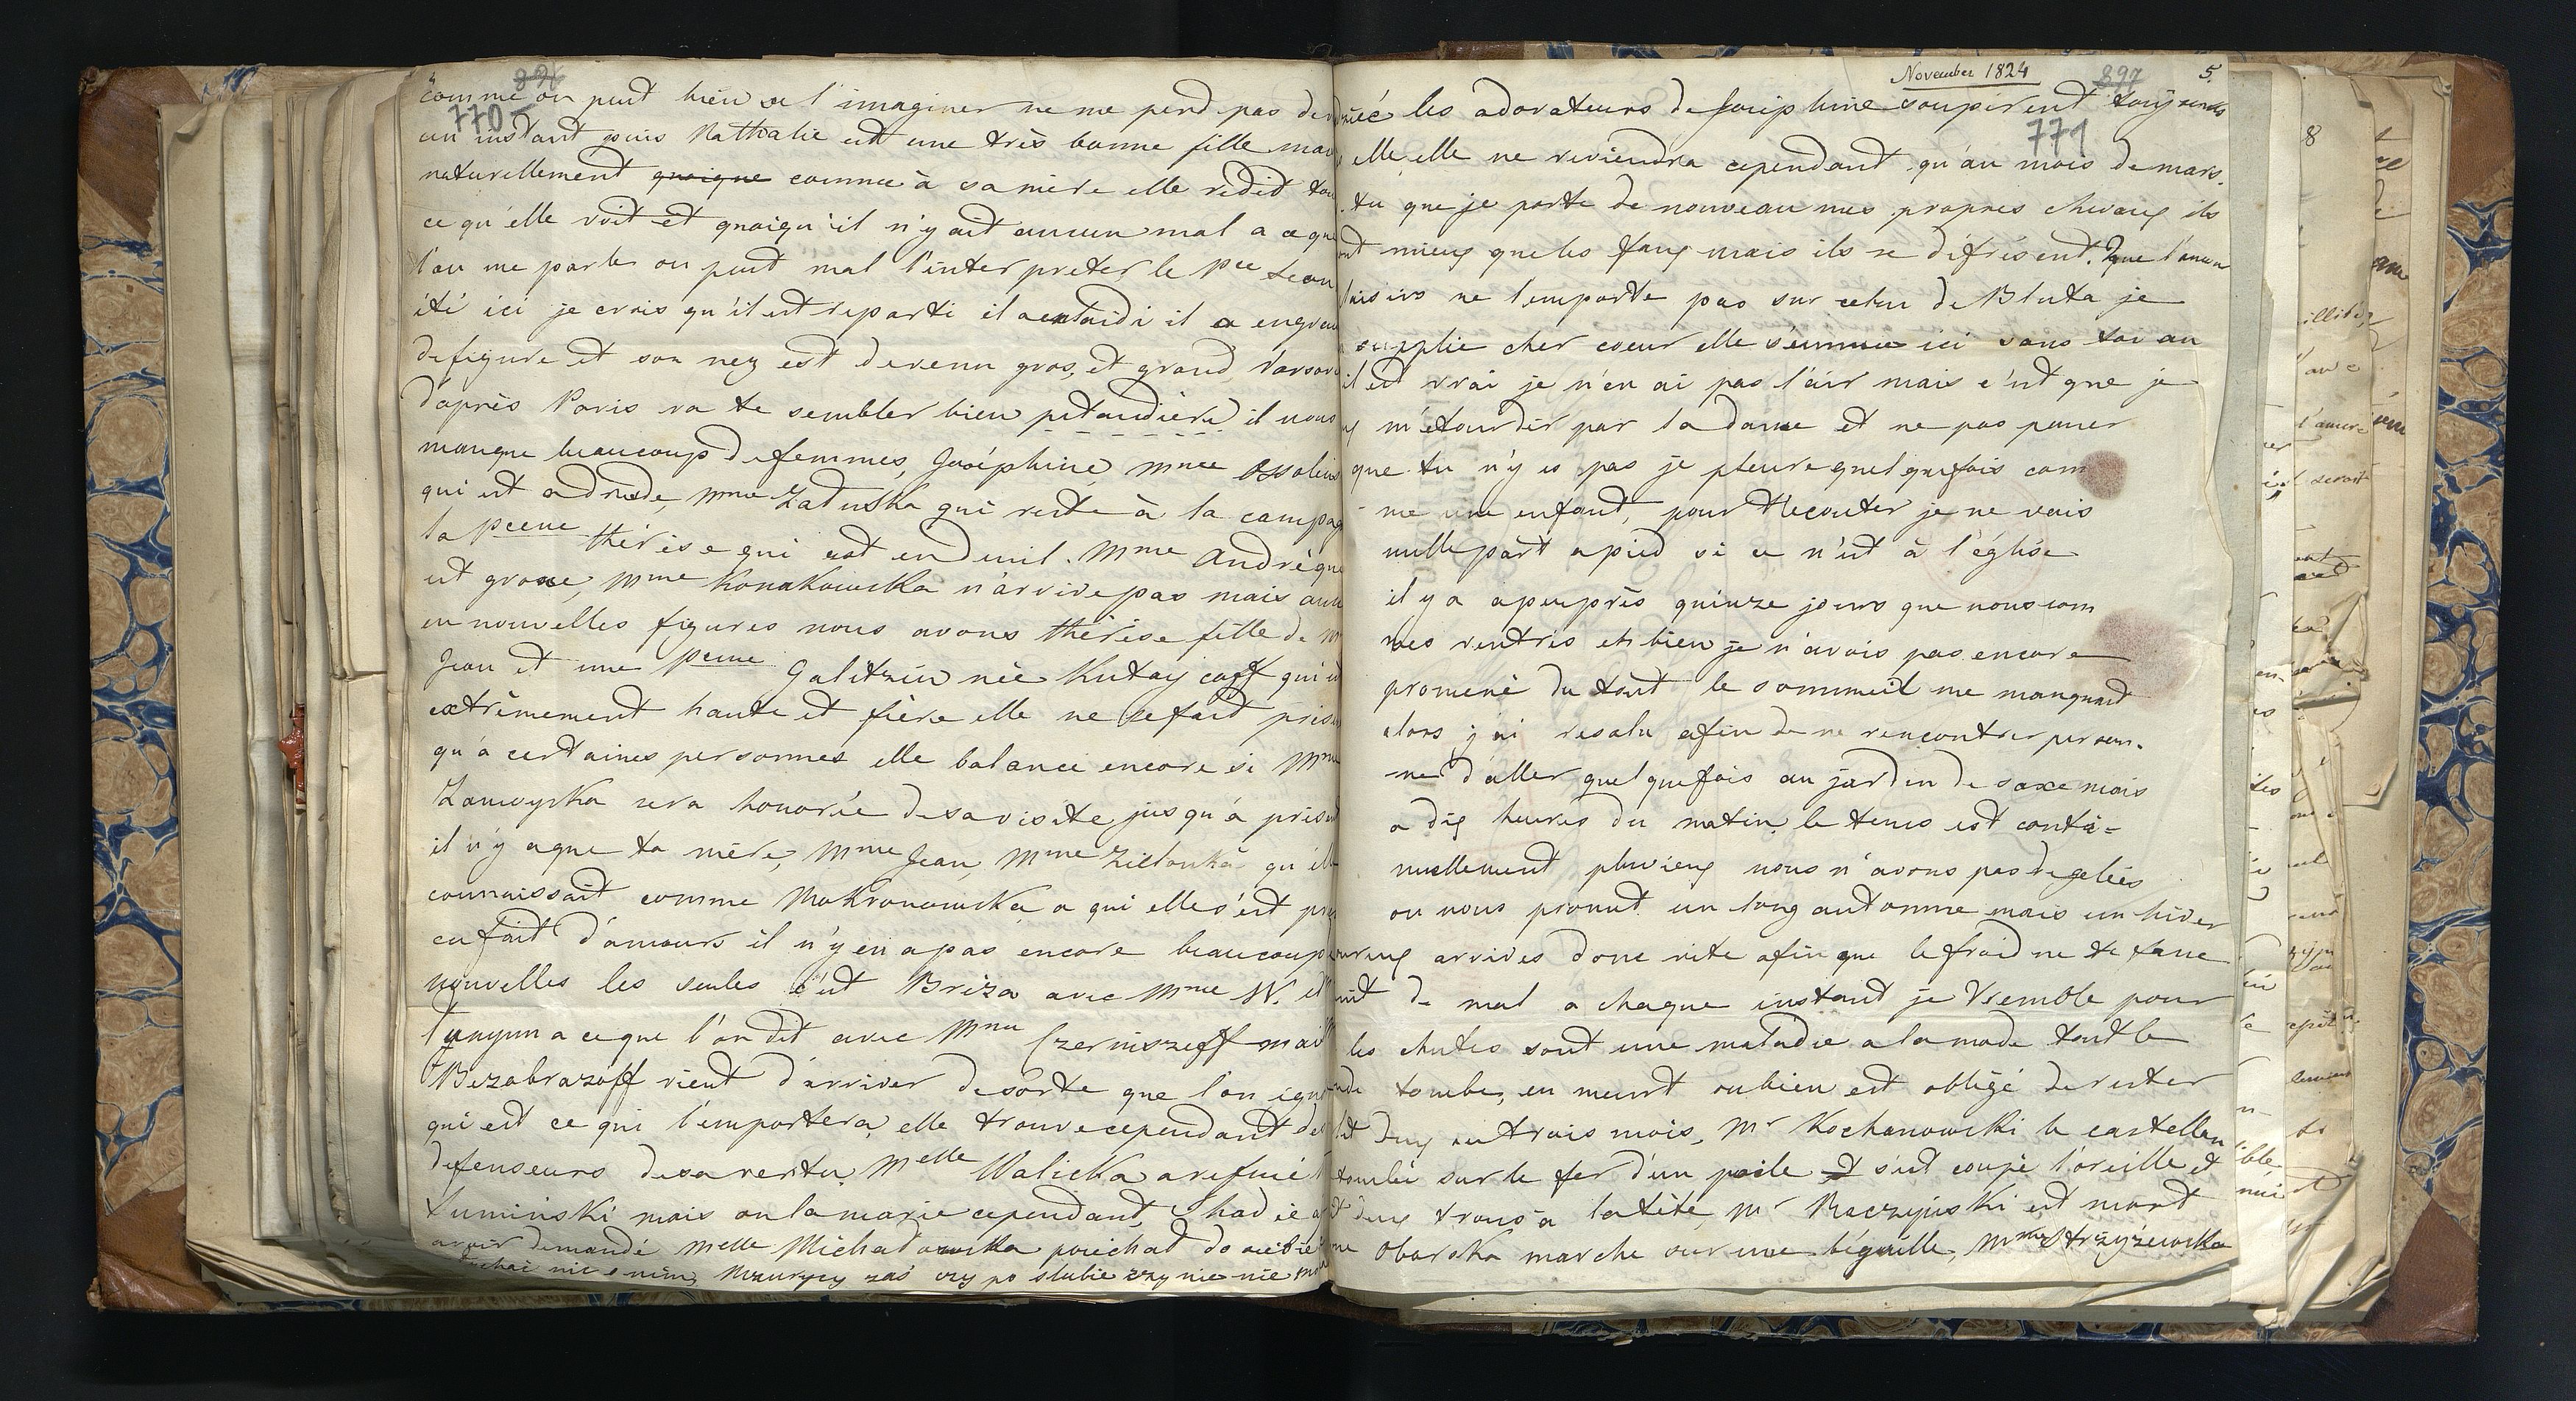 896
770
comme on peut bien se l'imaginer ne me perd pas de
un instant puis Nathalie est une très bonne fille mais
naturellement quoique comme à sa mère elle redit tou
ce qu'elle voit et quoiqu'il n'y ait aucun mal a ce que
l'on me parle on peut mal l'interpreter le Pce Leon
été ici je crois qu'il est reparti il a enlaidi il a engrai
de figure et son nez est devenu gros, et grand, Varsovi
d'après Paris va te sembler bien pétaudière il nous
manque beaucoup de femmes, Joséphine, Mme Ossolins
qui est a Drede, Mme Zaluska qui reste à la campag
la Pcesse thérèse qui est en deuil. Mme André qui
est grosse, Mme Konakowska n'arrive pas mais aussi
en nouvelles figures nous avons thérèse fille de M
Jean et une Pcesse Galitzin née Kutay coff qui es
extrêmement haute et fière elle ne se fait prése
qu'à certaines personnes elle balance encore si Mme
Zamoyska sera honorée de sa visite jusqu'à présent
il n'y a que ta mère, Mme Jean, Mme Zielonka qu'elle
connaissait comme Mokronowska a qui elle s'est pré
en fait d'amours il n'y en a pas encore beaucoup
nouvelles les seules c'est Briza avec Mme W. et
a ce que l'on dit avec Mme Czerniszeff mais
Bezabrazoff vient d'arriver de sorte que l'on igno
qui est ce qui l'emportera, elle trouve cependant des
defenseurs de sa vertu, Melle Walicka a refusé
Luminski mais on la marie cependant, Shodzie a
avoir demandé Melle Michałowska pojechał do siebie
słychać nic o nim, Mzurzy zaś czy po ślubie czy nie nie
November 1824
897
5.
771
les adorateurs de Joséphine soupirent toujours
elle, elle ne reviendra cependant qu'au mois de mars.
tu que je porte de nouveau mes propres cheveux ils
ont mieux que les faux mais ils se défrisent. Que l'amour
plaisirs ne l'emporte pas sur celui de Bluta je
supplie cher coeur elle s'ennuie ici sans toi au
il est vrai je n'en ai pas l'air mais c'est que je
m'étourdir par la danse et ne pas penser
que tu n'y es pas je pleure quelquefois com
me une enfant, pour t'écouter je ne vais
nulle part a pied si ce n'est à l'église
il y a apeuprès quinze jours que nous som
mes rentrés eh bien je n'avais pas encore
promené du tout le sommeil me manquait
alors j'ai resolu afin de ne rencontrer person-
ne d'aller quelquefois au jardin de saxe mais
a dix heures du matin, le tems est conti=
nuellement pluvieux nous n'avons pas de gelées
on nous promet un long automne mais un hiver
arrives donc vite afin que le froid ne te fasse
de mal a chaque instant je tremble pour
les chutes sont une maladie a la mode tout le
nde tombe, en meurt ou bien est obligé de rester
lit deux ou trois mois, Mr Kochanowski le castellan
tombé sur le fer d'un poele et s'est coupé l'oreille et
deux trous a la tête, Mr Raczyński est mort
me Oborska marche sur une béquille, Mme Strzyżewska